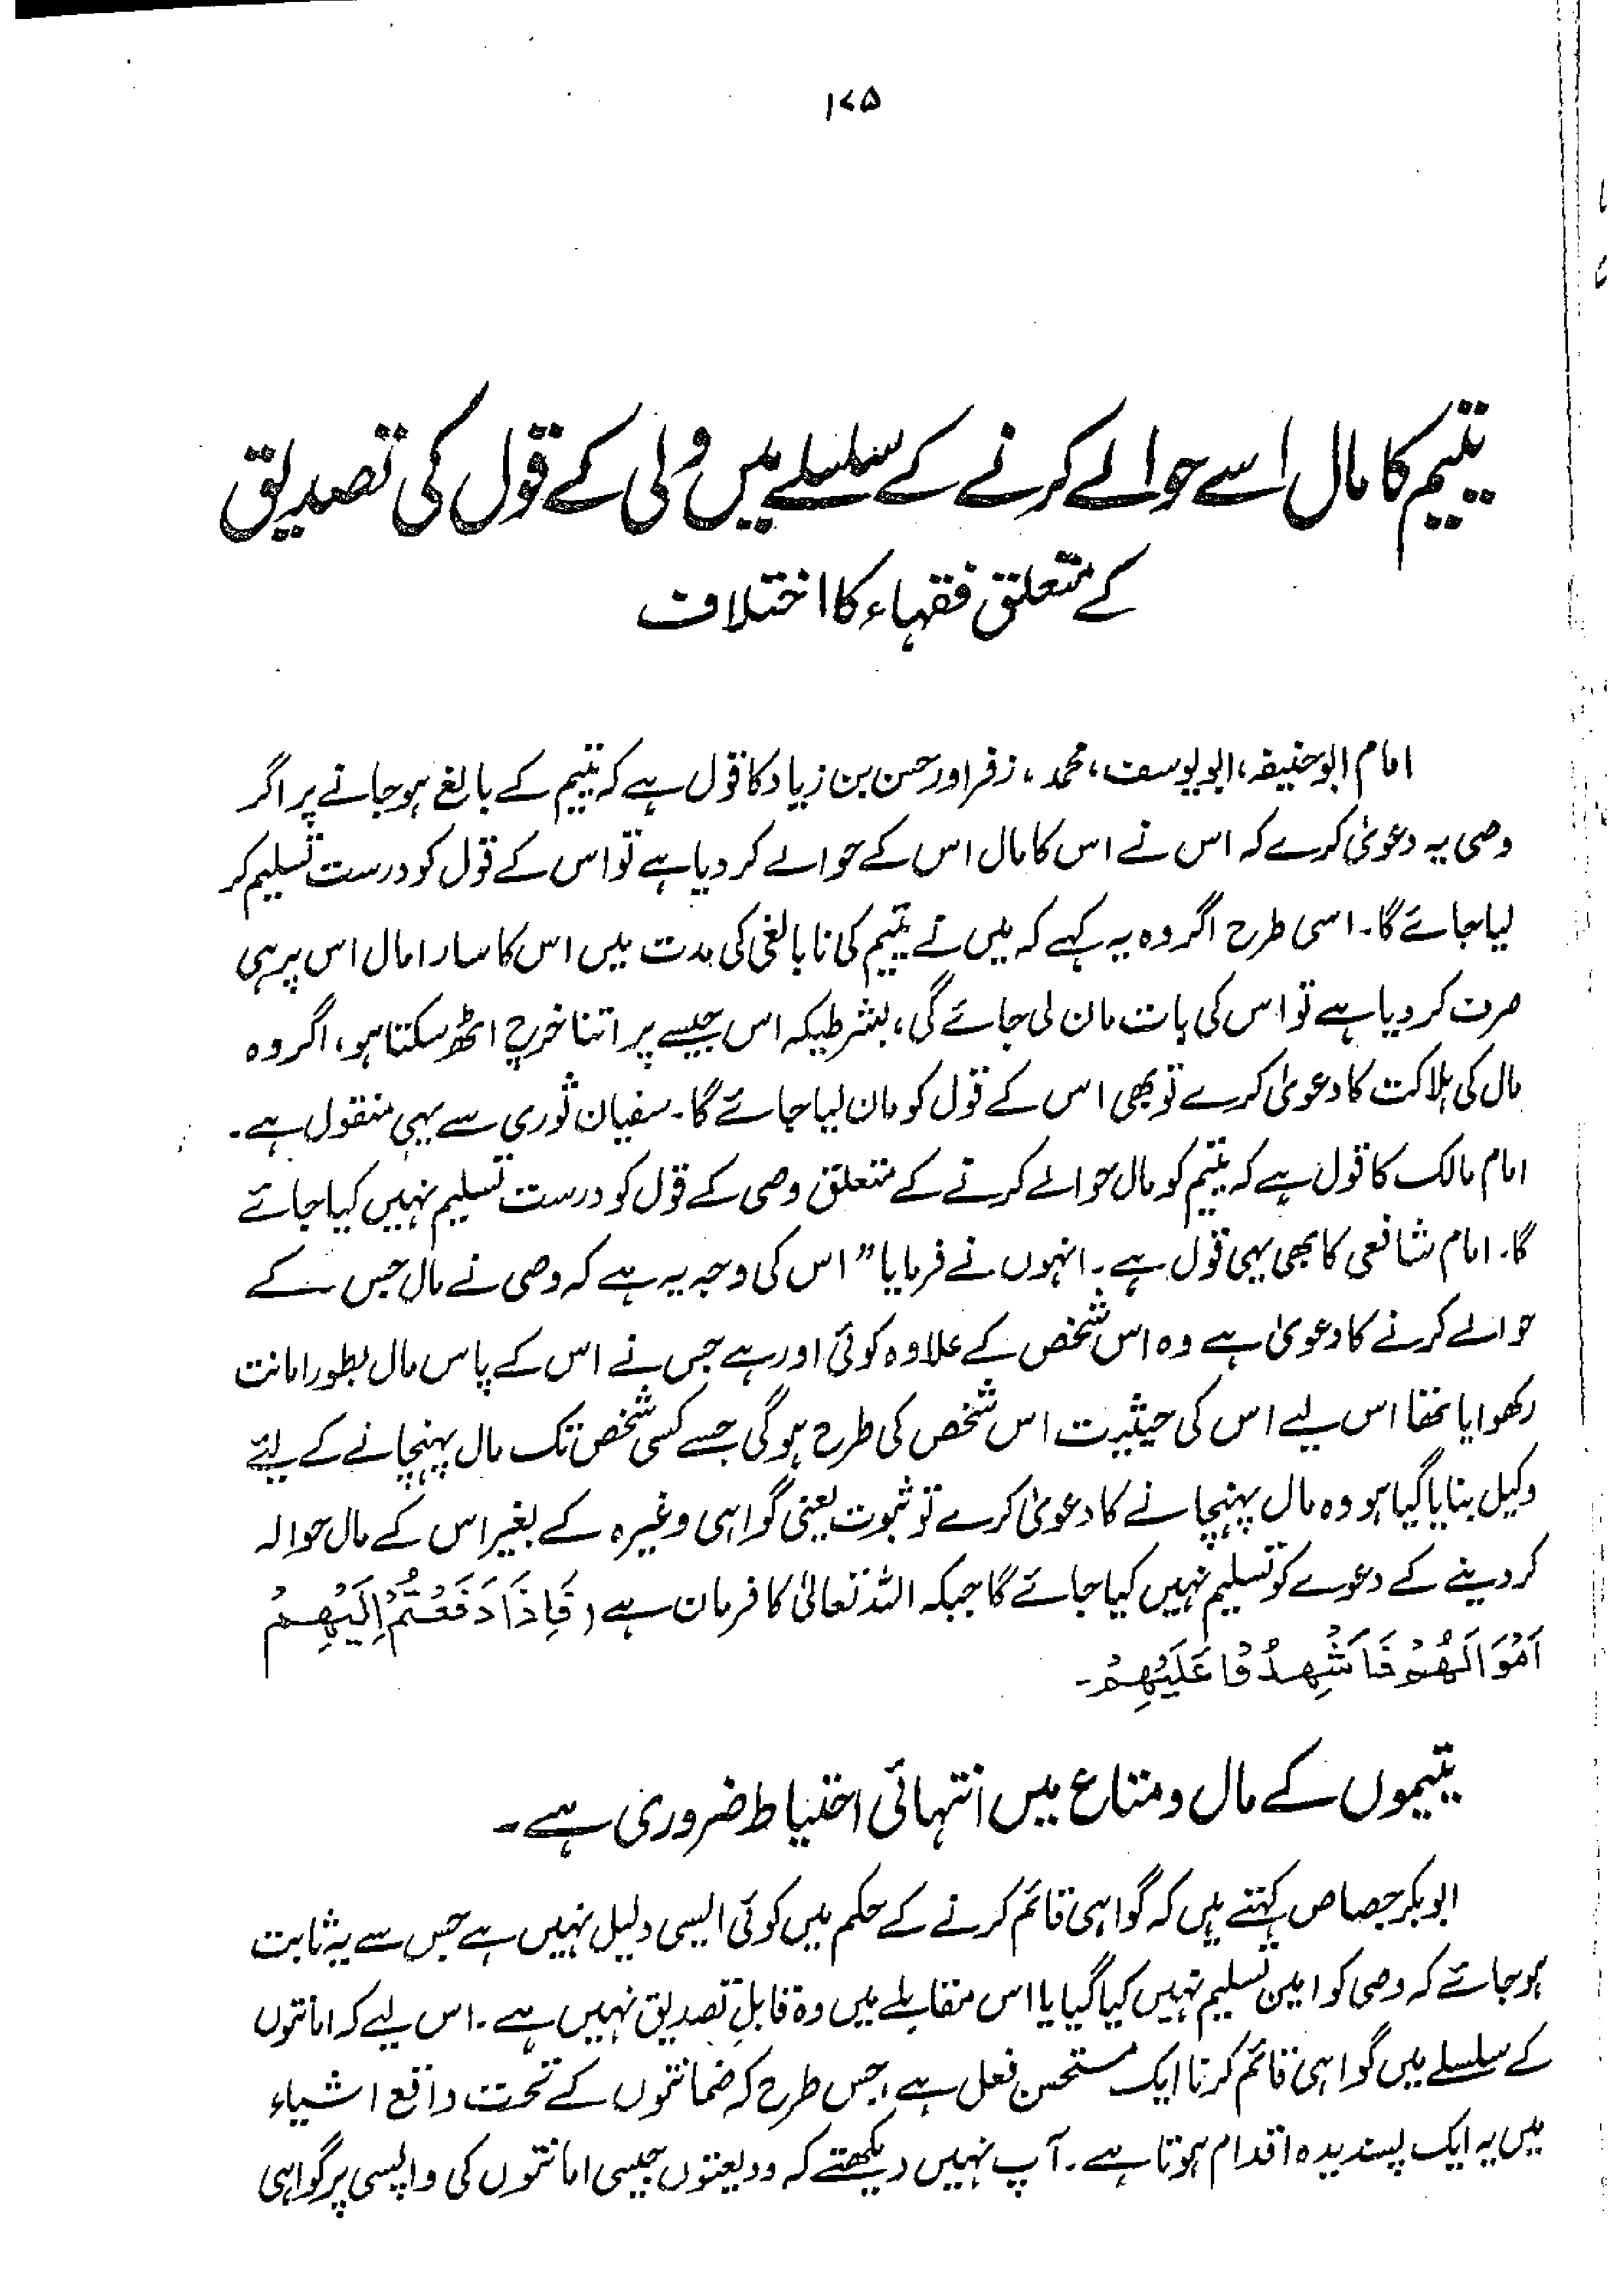 ۱۷۵
یتیم کا مال اسے حوالے کرنے کے سلسلے میں ولی کے قول کی تصدیق
کے متعلق فقہاء کا اختلاف
امام ابو حنیفہ، ابو یوسف، محمد، زفر اور حسن بن زیاد کا قول ہے کہ یتیم کے بالغ ہو جانے پر اگر
وصی یہ دعویٰ کرے کہ اس نے اس کا مال اس کے حوالے کر دیا ہے تو اس کے قول کو درست تسلیم کر
لیا جائے گا۔ اسی طرح اگر وہ یہ کہے کہ میں نے یتیم کی نابالغی کی مدت میں اس کا سارا مال اس پر ہی
صرف کر دیا ہے تو اس کی بات مان لی جائے گی، بشرطیکہ اس جیسے پر اتنا خرچ اٹھ سکتا ہو، اگر وہ
مال کی ہلاکت کا دعویٰ کرے تو بھی اس کے قول کو مان لیا جائے گا۔ سفیان ثوری سے یہی منقول ہے۔
امام مالک کا قول ہے کہ یتیم کو مال حوالے کرنے کے متعلق وصی کے قول کو درست تسلیم نہیں کیا جائے
گا۔ امام شافعی کا بھی یہی قول ہے۔ انہوں نے فرمایا ”اس کی وجہ یہ ہے کہ وصی نے مال جس کے
حوالے کرنے کا دعویٰ ہے وہ اس شخص کے علاوہ کوئی اور ہے جس نے اس کے پاس مال بطور امانت
رکھوایا تھا اس لیے اس کی حیثیت اس شخص کی طرح ہوگی جسے کسی شخص تک مال پہنچانے کے لیئے
وکیل بنایا گیا ہو وہ مال پہنچانے کا دعویٰ کرے تو ثبوت یعنی گواہی وغیرہ کے بغیر اس کے مال حوالہ
کر دینے کے دعوے کو تسلیم نہیں کیا جائے گا جبکہ اللہ تعالیٰ کا فرمان ہے (فَاِذَا دَفَعْتُمْ اِلَيْهِمْ
اَمْوَالَهُمْ فَاَشْهِدُوْا عَلَيْهِمْ۔
یتیموں کے مال و متاع میں انتہائی احتیاط ضروری ہے۔
ابوبکر جصاص کہتے ہیں کہ گواہی قائم کرنے کے حکم میں کوئی ایسی دلیل نہیں ہے جس سے یہ ثابت
ہو جائے کہ وصی کو امین تسلیم نہیں کیا گیا یا اس مقابلے میں وہ قابلِ تصدیق نہیں ہے۔ اس لیے کہ امانتوں
کے سلسلے میں گواہی قائم کرنا ایک مستحسن فعل ہے، جس طرح کہ ضمانتوں کے تحت واقع اشیاء
میں یہ ایک پسندیدہ اقدام ہوتا ہے۔ آپ نہیں دیکھتے کہ ودیعتوں جیسی امانتوں کی واپسی پر گواہی